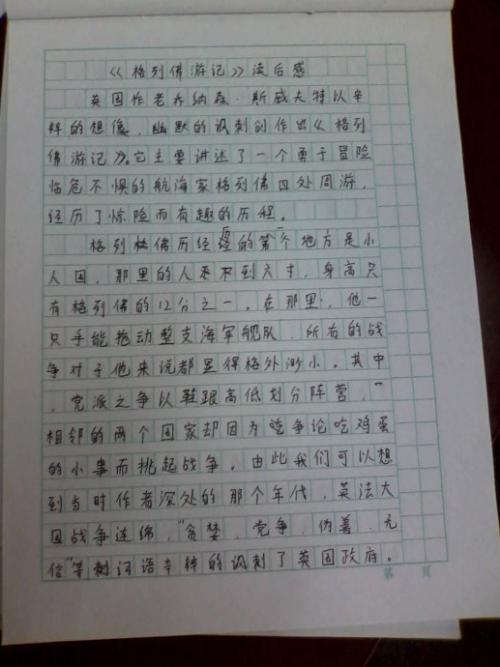 《格列佛游记》读后感
英国作老乔纳森·斯威夫特以辛
辣的想像，幽默的讽刺创作出《格列
佛游记》。它主要讲述了一个勇于冒险
临危不惧的航海家格列佛四处周游，
经历了惊险而有趣的历程。
格列佛历经的第一个地方是小
人国，那里的人不到六寸，身高只
有格列佛的12分之一。在那里，他一
只手能拖动整支海军舰队，所有的战
争对于他来说都显得格外渺小。其中
，党派之争以鞋跟高低划分阵营，
相邻的两个国家却因为争论吃鸡蛋
的小事而挑起战争。由此我们可以想
到当时作者深处的那个年代，英法大
国战争连绵，"贪婪，党争，伪善、无
信"等词语辛辣的讽刺了英国政府。
第 页